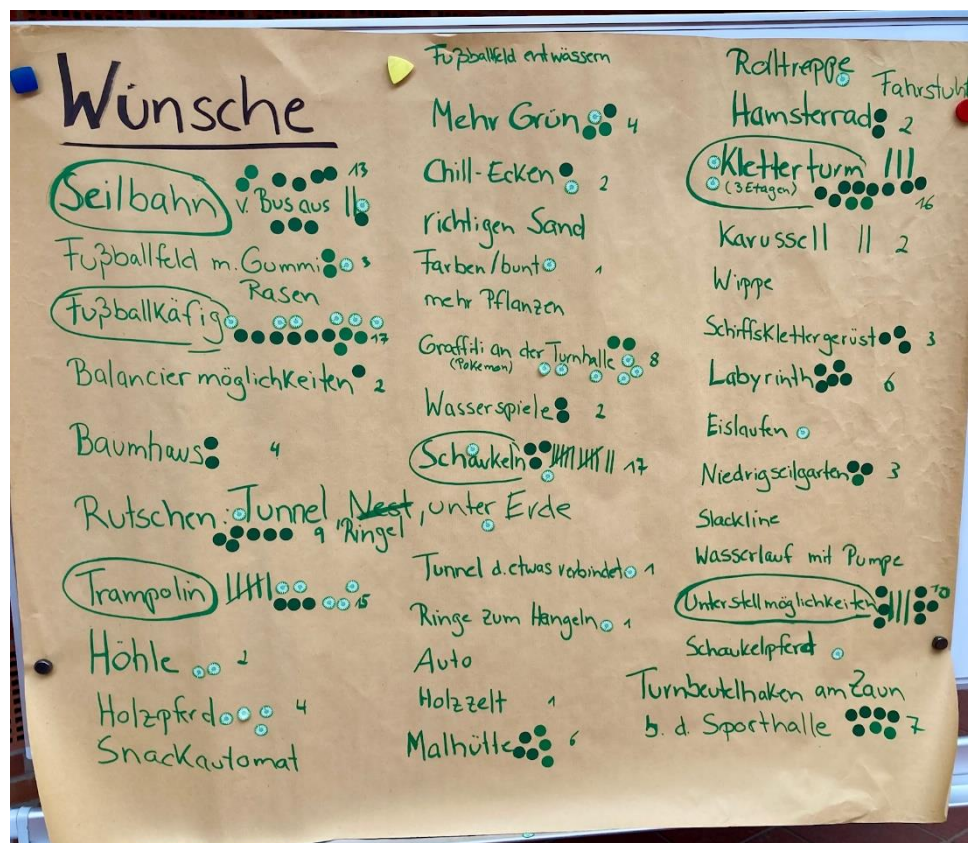 Wünsche
Seilbahn v. Bus aus || 13
Fußballfeld m. Gummi 3
Rasen
Fußballkäfig 17
Balancier möglichkeiten 2
Baumhaus 4
Rutschen: Tunnel Nest, unter Erde
9 "Ringel
Trampolin |||| 15
Höhle 2
Holzpferd 4
Snackautomat
Fußballfeld entwässern
Mehr Grün 4
Chill-Ecken 2
richtigen Sand
Farben/bunt 1
mehr Pflanzen
Graffiti an der Turnhalle 8
(Pokemon)
Wasserspiele 2
Schaukeln |||| |||| || 17
Tunnel d. etwas verbindet 1
Ringe zum Hangeln 1
Auto
Holzzelt 1
Malhütte 6
Rolltreppe
Fahrstuhl
Hamsterrad 2
Kletterturm |||
(3 Etagen) 16
Karussell || 2
Wippe
Schiffsklettergerüst 3
Labyrinth 6
Eislaufen
Niedrigseilgarten 3
Slackline
Wasserlauf mit Pumpe
Unterstellmöglichkeiten ||| 10
Schaukelpferd
Turnbeutelhaken am Zaun
b. d. Sporthalle 7